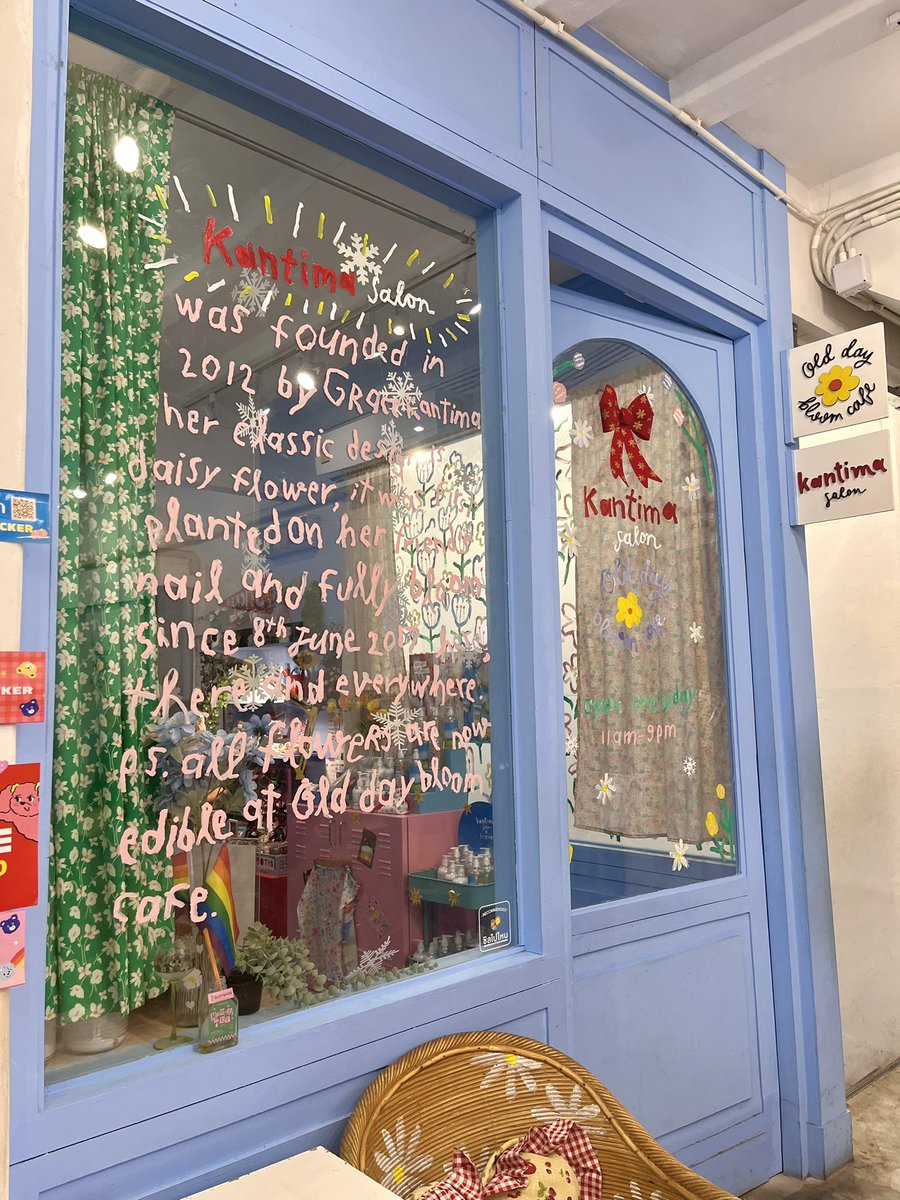 Kantima
salon
was founded in
2012 by Grace kantima
her classic design is
daisy flower, it was first
planted on her friend's
nail and fully bloom
since 8th June 2012 here,
there and everywhere
ps. all flowers are now
edible at Old day bloom
cafe.
Kantima
salon
Old day
open everyday
11am-9pm
Old day
bloom cafe
kantima
salon
CKER
CKER
RECOMMENDED